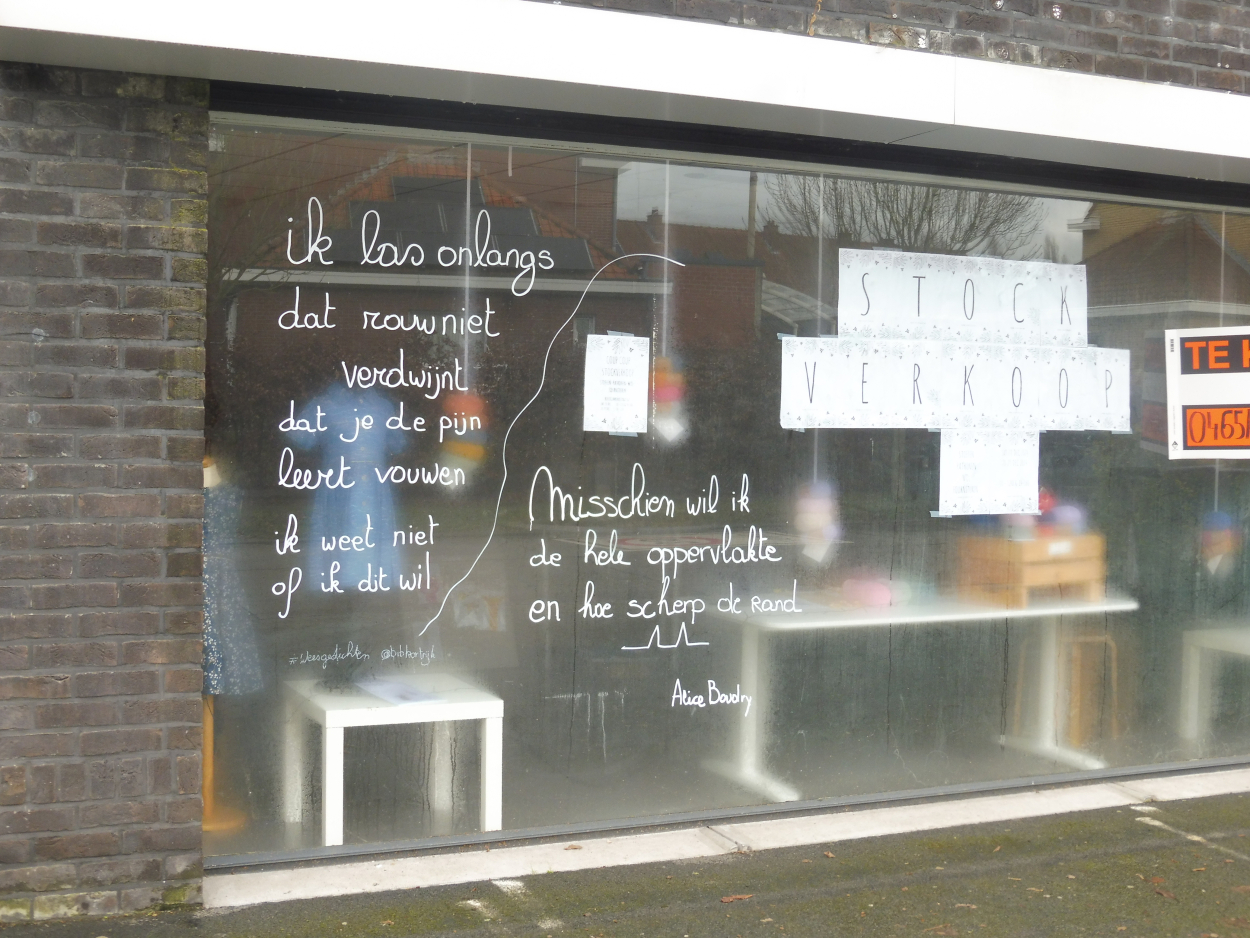 ik las onlangs
dat rouw niet
verdwijnt
dat je de pijn
leert vouwen
ik weet niet
of ik dit wil
Misschien wil ik
de hele oppervlakte
en hoe scherp de rand
Alice Boudry
STOCK
VERKOOP
TE K
0465/